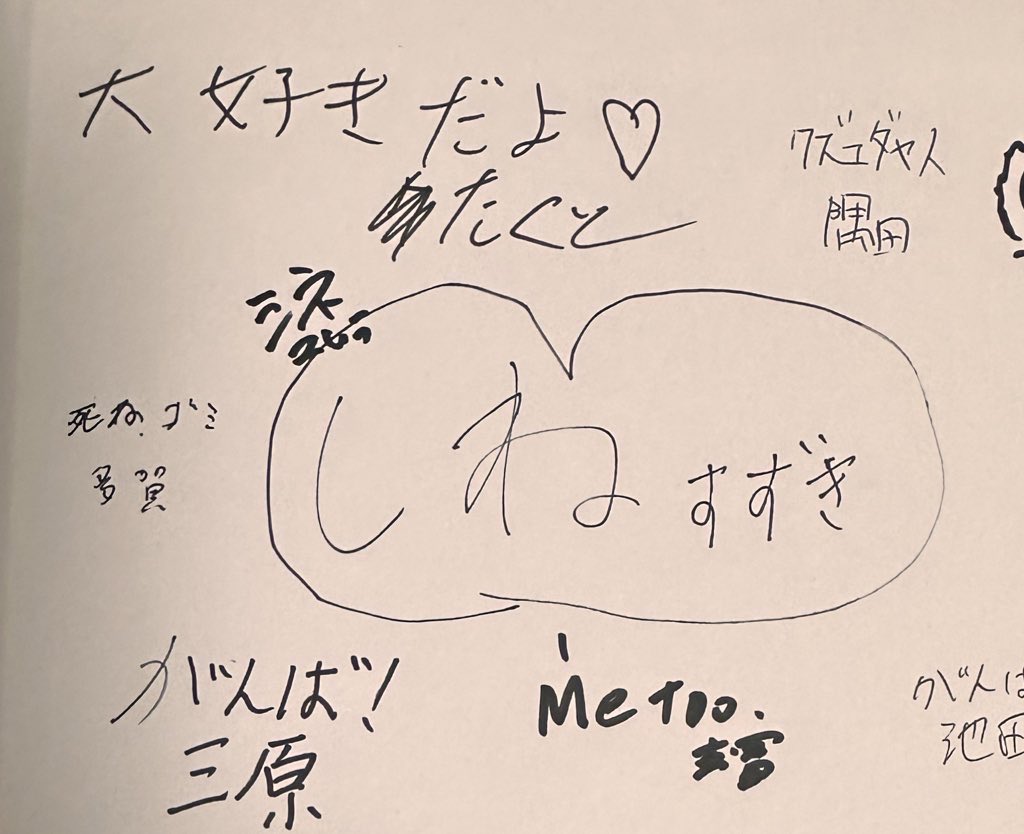 大好きだよ♡
たくと
クズユダヤ人
隅田
死ね.ゴミ
多賀
しね すずき
がんば!
三原
Me too.
がんば
池田